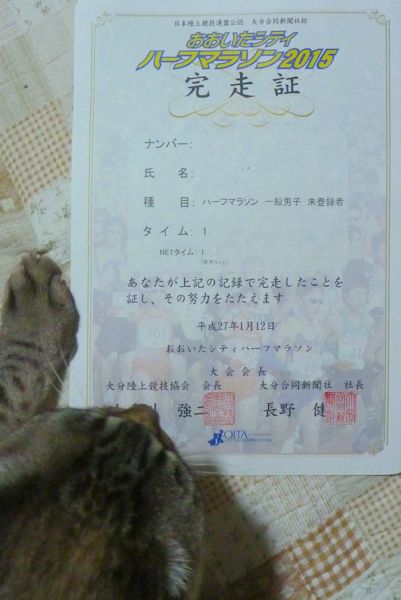 日本陸上競技連盟公認 大分合同新聞社杯
おおいたシティ
ハーフマラソン2015
完走証
ナンバー:
氏 名:
種 目: ハーフマラソン 一般男子 未登録者
タイム: 1.
NETタイム: 1.
(参考タイム)
あなたが上記の記録で完走したことを
証し、その努力をたたえます
平成27年1月12日
おおいたシティハーフマラソン
大会会長
大分陸上競技協会 会長 大分合同新聞社 社長
強二 長野 健
OITA